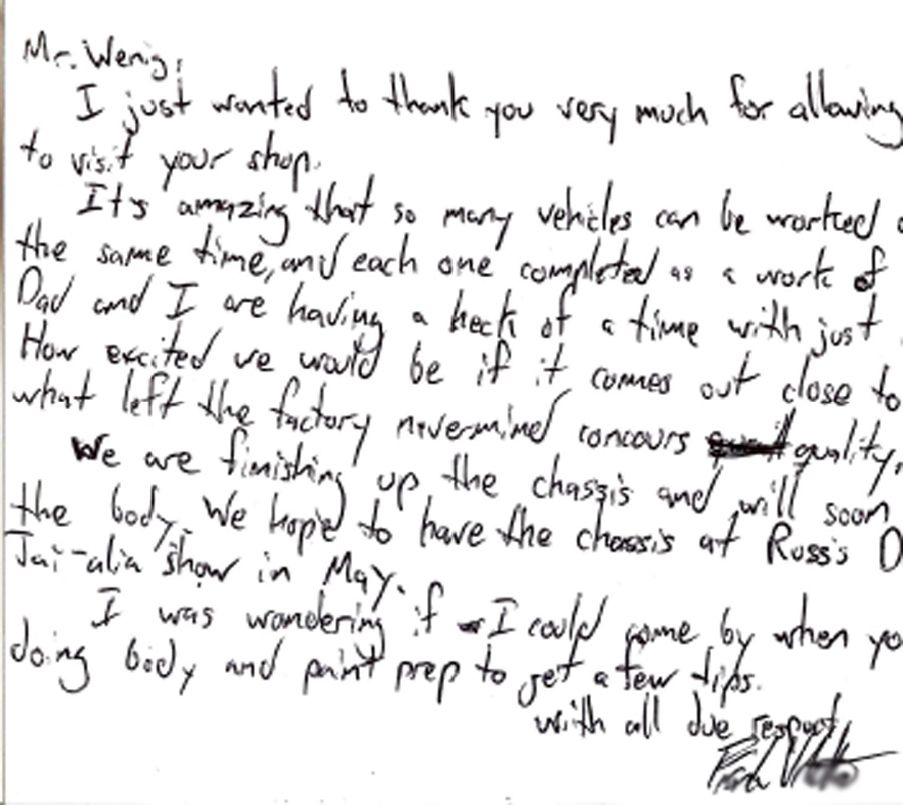 Mr. Wenig,
I just wanted to thank you very much for allowing
to visit your shop.
It's amazing that so many vehicles can be worked
the same time, and each one completed as a work of
Dad and I are having a heck of a time with just
How excited we would be if it comes out close to
what left the factory nevermind concours quality.
We are finishing up the chassis and will soon
the body. We hope to have the chassis at Russ's D
Jai-alia show in May.
I was wondering if I could come by when yo
doing body and paint prep to get a few tips.
with all due respect